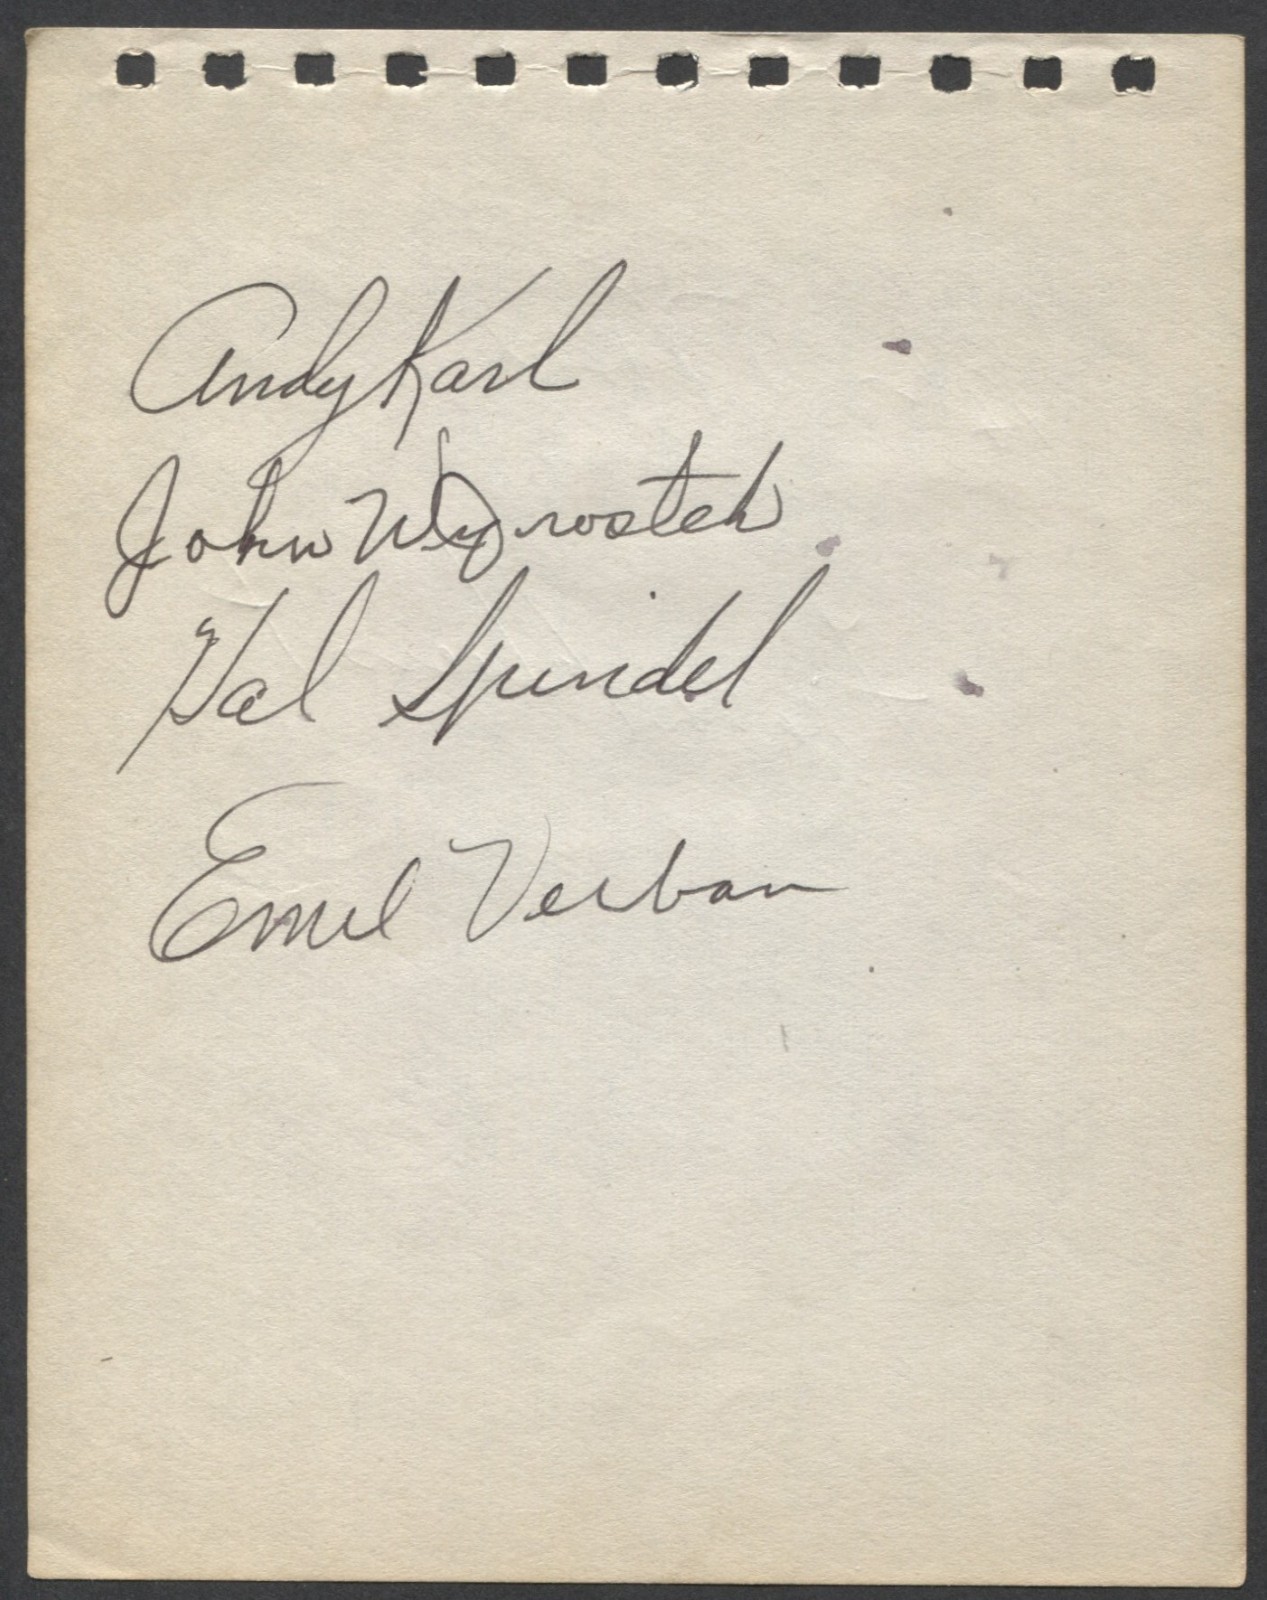 Andy Karl
John Wyrostek
Hal Spindel
Emil Verban